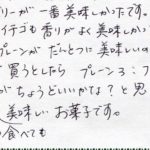 リーが一番美味しかったです。
イチゴも香りがよく美味しかっ
プレーンが だんとつに美味しいの
買うとしたら プレーン3:フ
がちょうどいいかな?と思
美味しい お菓子です。
食べても